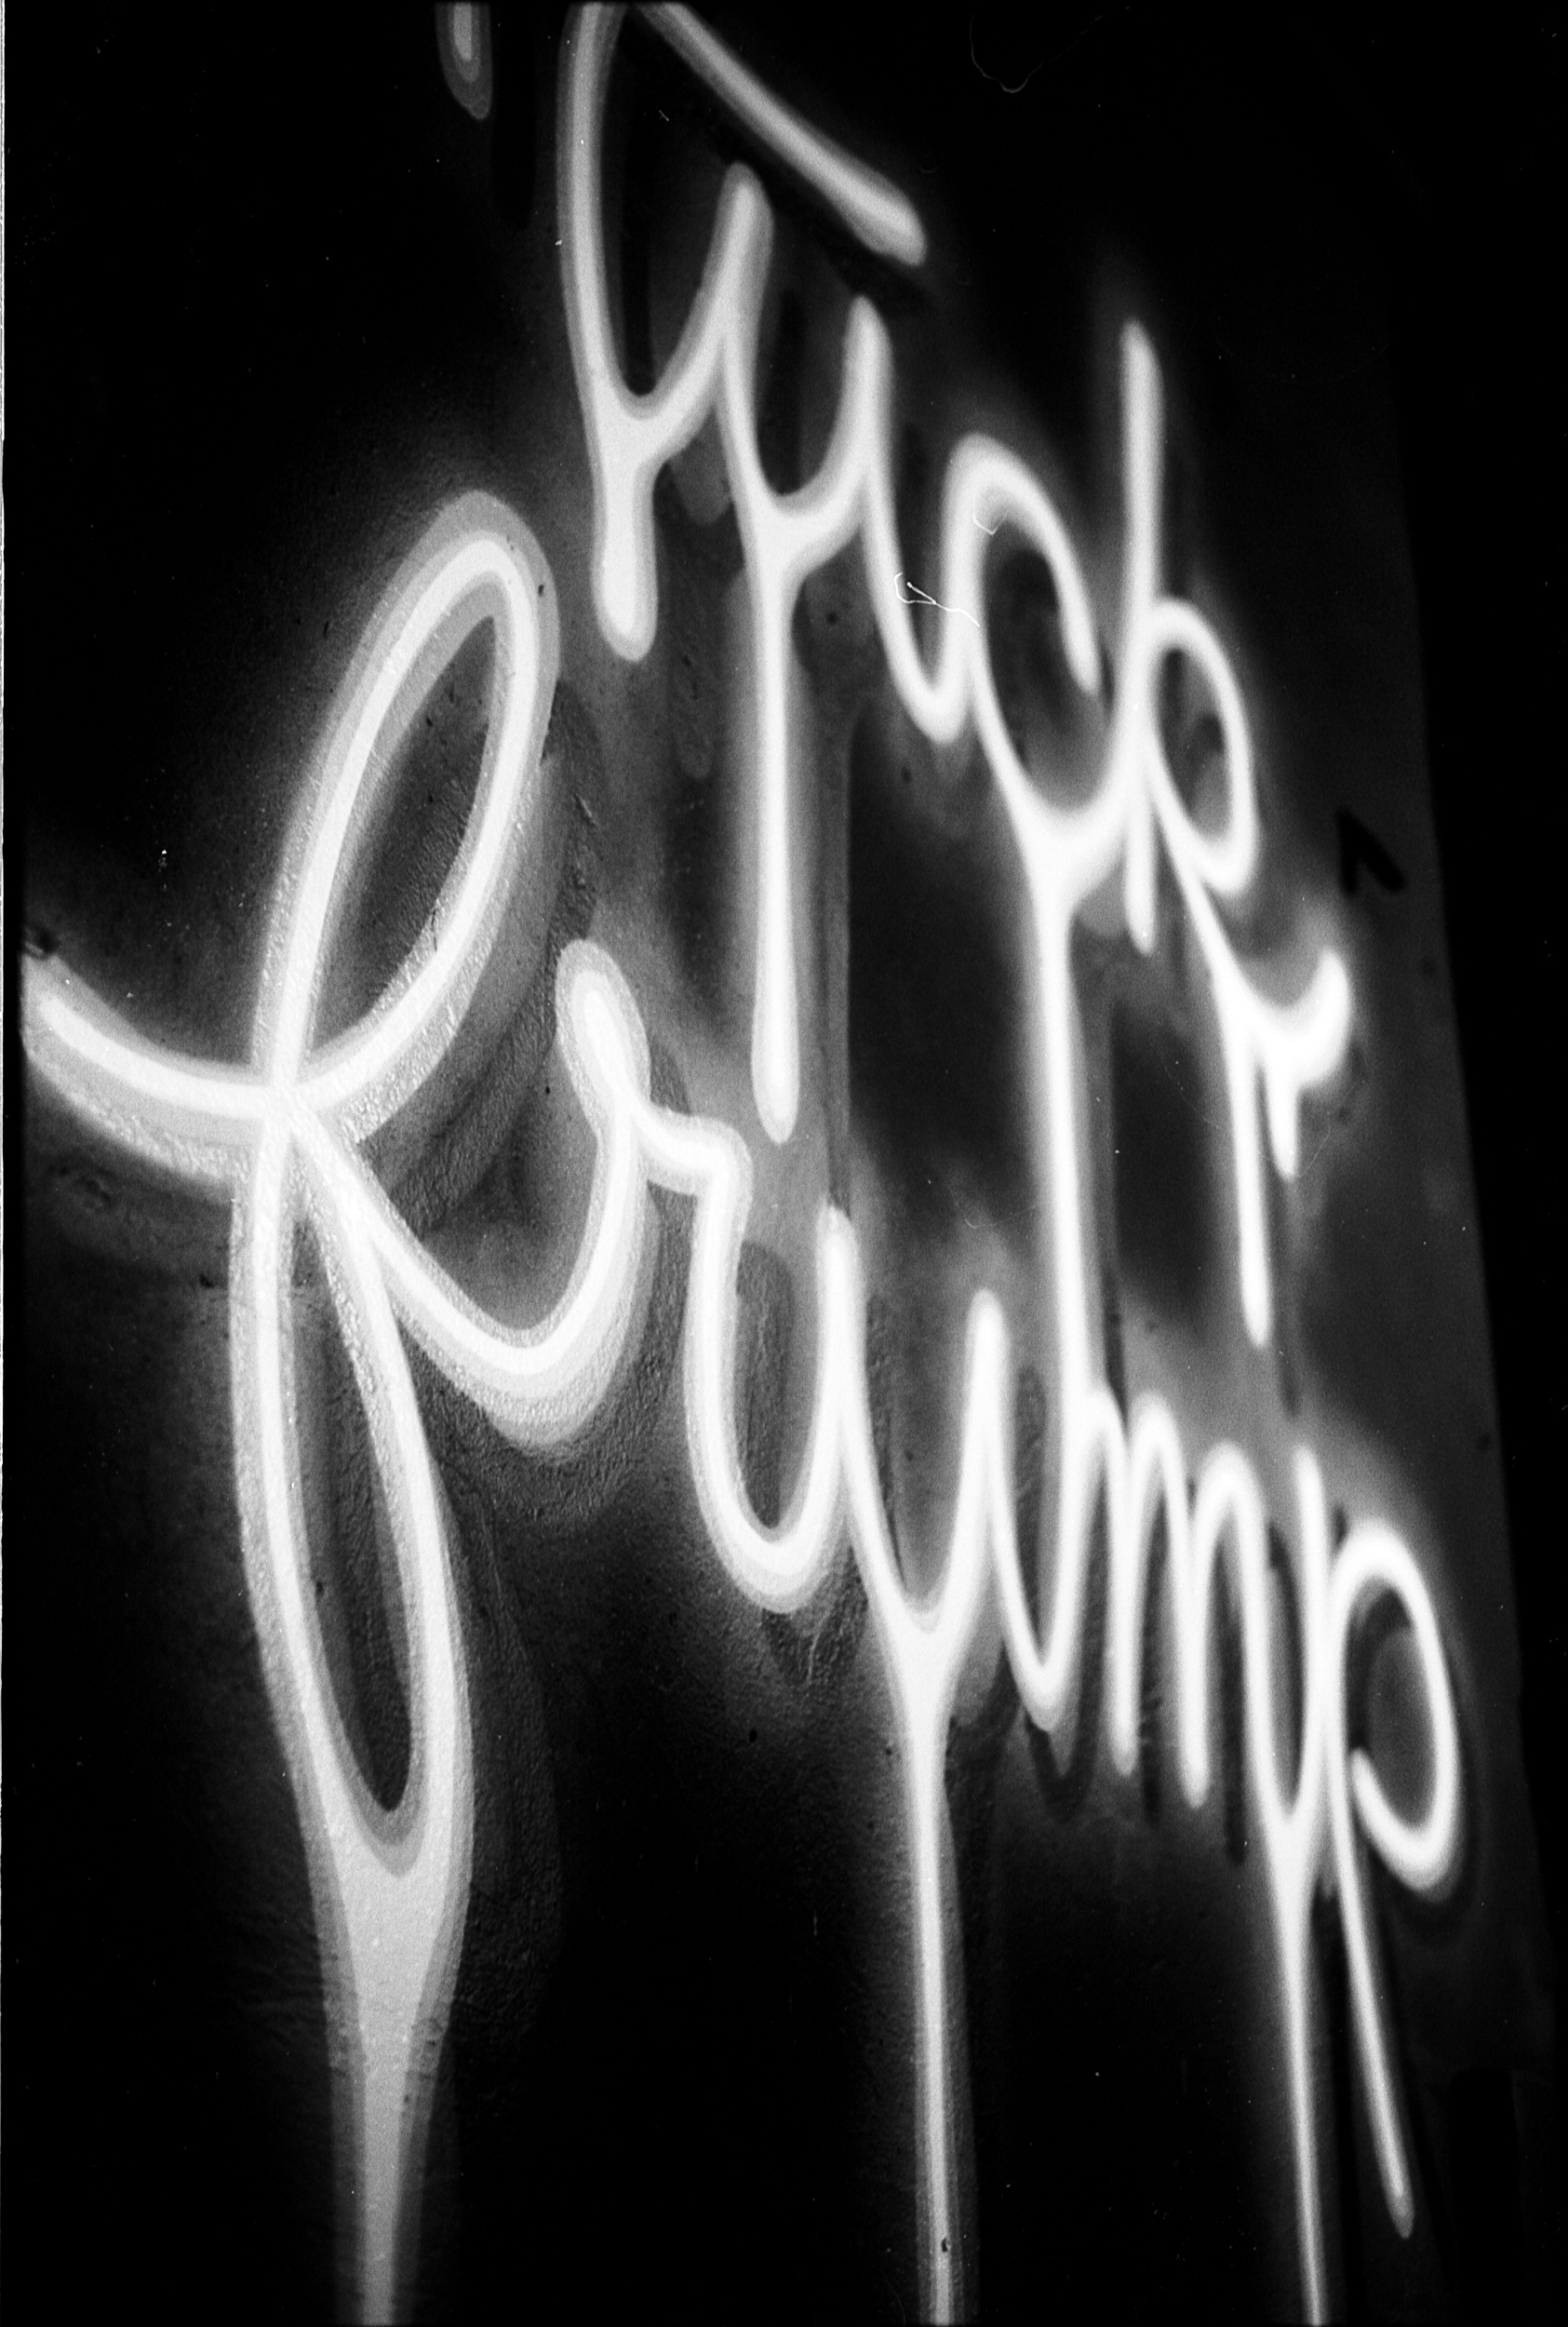 Fuck
trump